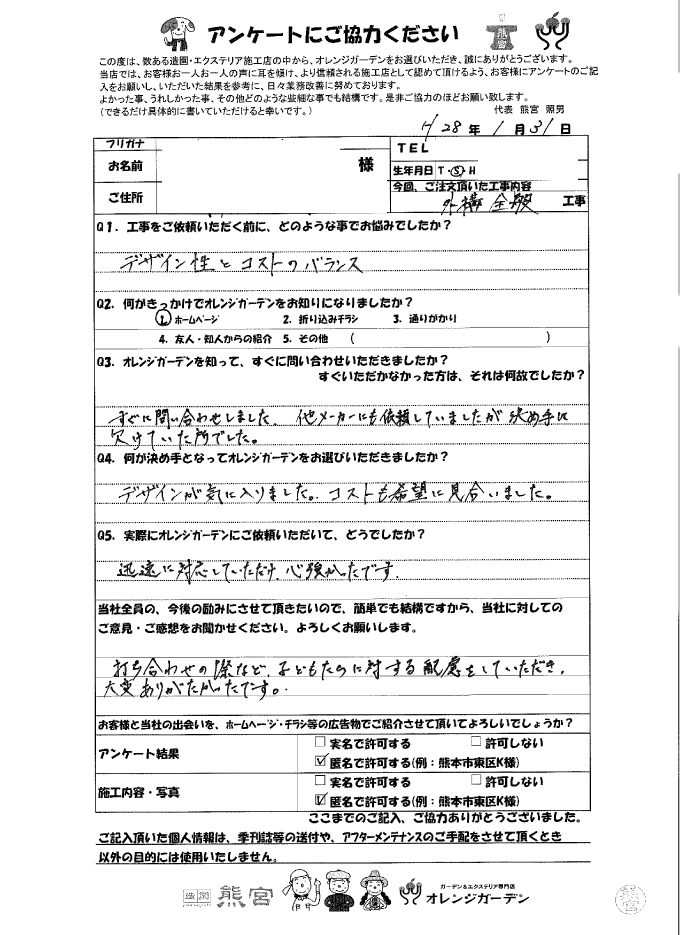 アンケートにご協力ください
熊宮
この度は、数ある造園・エクステリア施工店の中から、オレンジガーデンをお選びいただき、誠にありがとうございます。
当店では、お客様お一人お一人の声に耳を傾け、より信頼される施工店として認めて頂けるよう、お客様にアンケートのご記
入をお願いし、いただいた結果を参考に、日々業務改善に努めております。
よかった事、うれしかった事、その他どのような些細な事でも結構です。是非ご協力のほどお願い致します。
(できるだけ具体的に書いていただけると幸いです。) 代表 熊宮 照男
H 28 年 1 月 31 日
フリガナ
お名前 様
ご住所
TEL
生年月日 T・S・H
今回、ご注文頂いた工事内容
外構 全般 工事
Q1. 工事をご依頼いただく前に、どのような事でお悩みでしたか?
デザイン性とコストのバランス
Q2. 何がきっかけでオレンジガーデンをお知りになりましたか?
1. ホームページ 2. 折り込みチラシ 3. 通りがかり
4. 友人・知人からの紹介 5. その他 ( )
Q3. オレンジガーデンを知って、すぐに問い合わせいただきましたか?
すぐいただかなかった方は、それは何故でしたか?
すぐに問い合わせしました。他メーカーにも依頼していましたが決め手に
欠けていた所でした。
Q4. 何が決め手となってオレンジガーデンをお選びいただきましたか?
デザインが気に入りました。コストも希望に見合いました。
Q5. 実際にオレンジガーデンにご依頼いただいて、どうでしたか?
迅速に対応していただけ、心強かったです。
当社全員の、今後の励みにさせて頂きたいので、簡単でも結構ですから、当社に対しての
ご意見・ご感想をお聞かせください。よろしくお願いします。
打ち合わせの際など、子どもたちに対する配慮をしていただき、
大変ありがたかったです。
お客様と当社の出会いを、ホームページ・チラシ等の広告物でご紹介させて頂いてよろしいでしょうか?
アンケート結果
□ 実名で許可する □ 許可しない
☑ 匿名で許可する(例:熊本市東区K様)
施工内容・写真
□ 実名で許可する □ 許可しない
☑ 匿名で許可する(例:熊本市東区K様)
ここまでのご記入、ご協力ありがとうございました。
ご記入頂いた個人情報は、季刊誌等の送付や、アフターメンテナンスのご手配をさせて頂くとき
以外の目的には使用いたしません。
造園 熊宮
ガーデン&エクステリア専門店
オレンジガーデン
熊宮